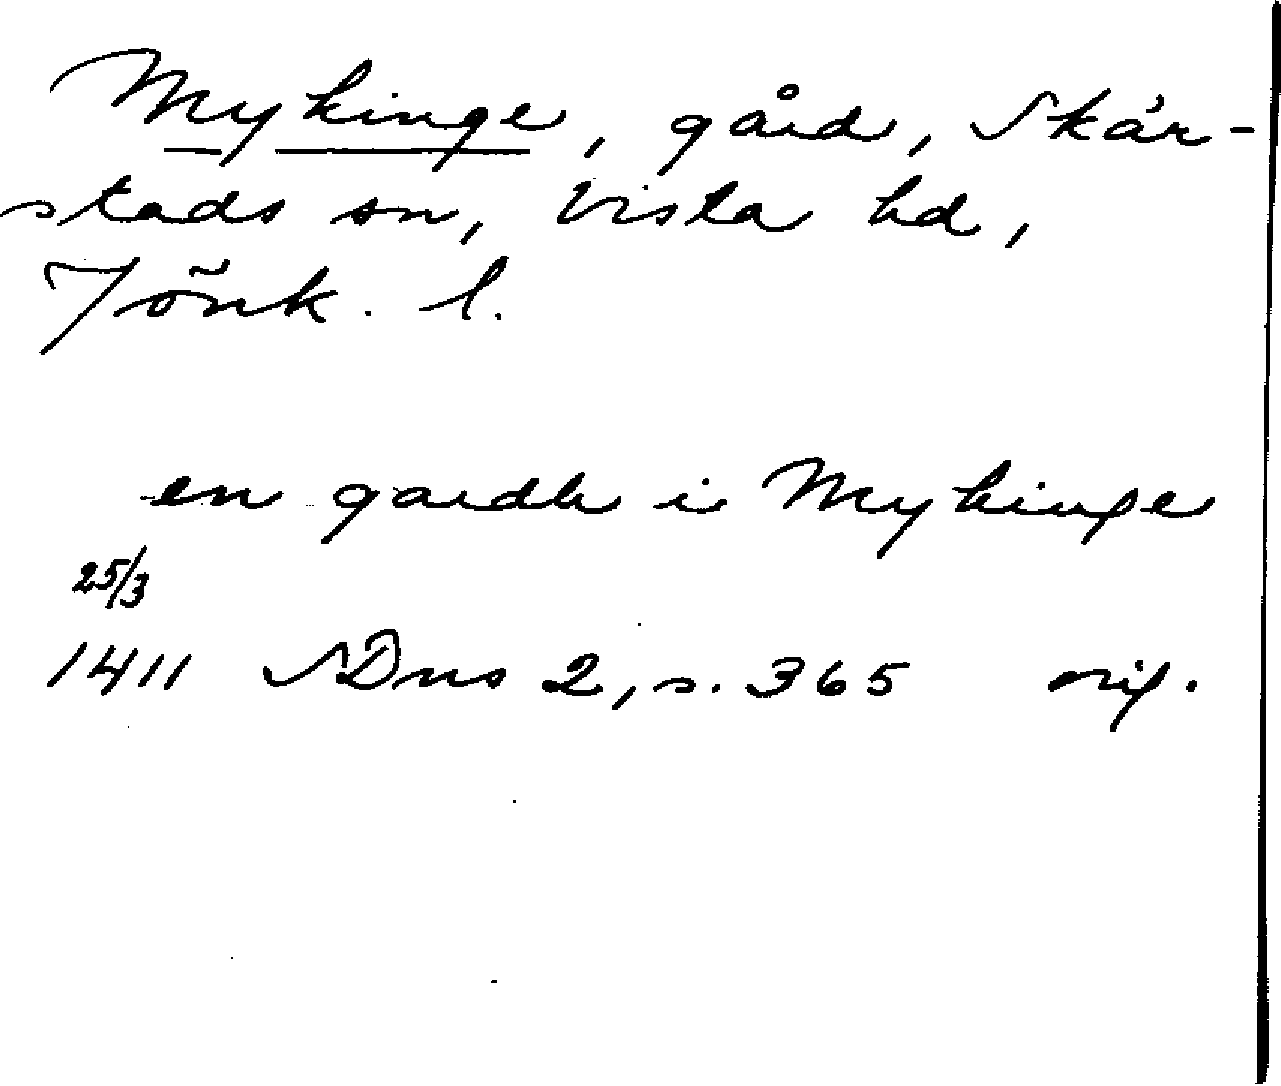 Mykinge, gård, Skär-
stads sn, Vista hd,
Jönk. l.
en gardh i Mykinge
25/3
1411 SDns 2, s. 365 orig.